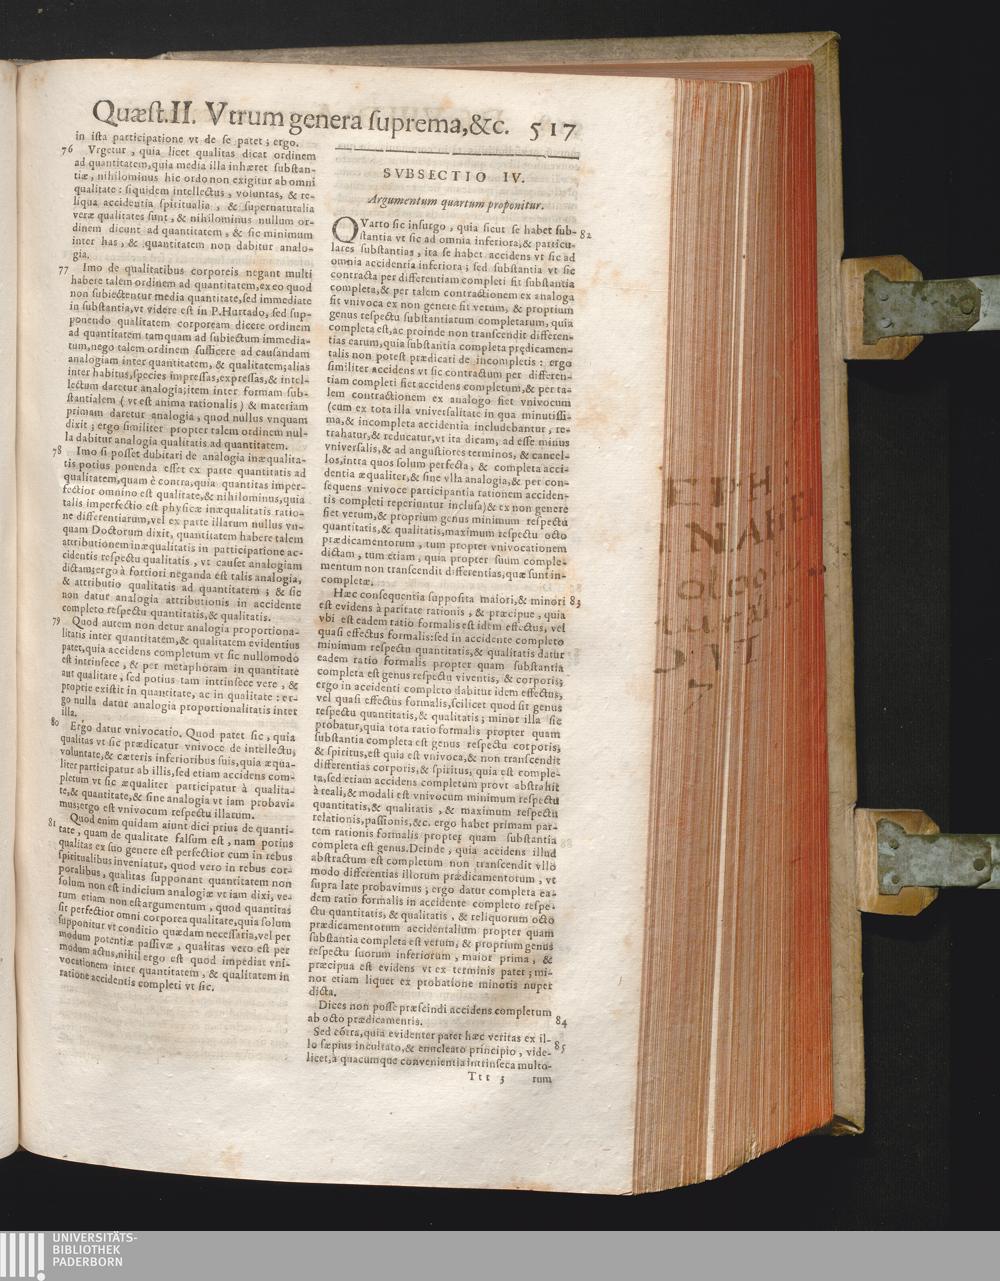 Quæst.II. Vtrum genera suprema,&c. 517
in ista participatione vt de se patet; ergo.
76 Vrgetur, quia licet qualitas dicat ordinem
ad quantitatem,quia media illa inhæret substan-
tiæ, nihilominus hic ordo non exigitur ab omni
qualitate: siquidem intellectus, voluntas, & re-
liqua accidentia spiritualia, & supernaturalia
veræ qualitates sunt, & nihilominus nullum or-
dinem dicunt ad quantitatem, & sic minimum
inter has, & quantitatem non dabitur analo-
gia.
77 Imo de qualitatibus corporeis negant multi
habere talem ordinem ad quantitatem,ex eo quod
non subiectentur media quantitate,sed immediate
in substantia,vt videre est in P.Hurtado, sed sup-
ponendo qualitatem corpoream dicere ordinem
ad quantitatem tamquam ad subiectum immedia-
tum,nego talem ordinem sufficere ad causandam
analogiam inter quantitatem, & qualitatem;alias
inter habitus,species impressas,expressas,& intel-
lectum daretur analogia;item inter formam sub-
stantialem (vt est anima rationalis) & materiam
primam daretur analogia, quod nullus vnquam
dixit; ergo similiter propter talem ordinem nul-
la dabitur analogia qualitatis ad quantitatem.
78 Imo si posset dubitari de analogia inæqualita-
tis potius ponenda esset ex parte quantitatis ad
qualitatem,quam è contra,quia quantitas imper-
fectior omnino est qualitate,& nihilominus,quia
talis imperfectio est physicæ inæqualitatis ratio-
ne differentiarum,vel ex parte illarum nullus vn-
quam Doctorum dixit, quantitatem habere talem
attributionem inæqualitatis in participatione ac-
cidentis respectu qualitatis, vt causet analogiam
dictam;ergo à fortiori neganda est talis analogia,
& attributio qualitatis ad quantitatem; & sic
non datur analogia attributionis in accidente
completo respectu quantitatis,& qualitatis.
79 Quod autem non detur analogia proportiona-
litatis inter quantitatem,& qualitatem evidentius
patet,quia accidens completum vt sic nullomodo
est intrinsece, & per metaphoram in quantitate
aut qualitate, sed potius tam intrinsece vere, &
proprie existit in quantitate, ac in qualitate: er-
go nulla datur analogia proportionalitatis inter
illa.
80 Ergo datur vnivocatio. Quod patet sic, quia
qualitas vt sic prædicatur vnivoce de intellectu;
voluntate,& cæteris inferioribus suis,quia æqua-
liter participatur ab illis,sed etiam accidens com-
pletum vt sic æqualiter participatur à qualita-
te,& quantitate,& sine analogia vt iam probavi-
mus;ergo est vnivocum respectu illarum.
81 Quod enim quidam aiunt dici prius de quanti-
tate, quam de qualitate falsum est, nam potius
qualitas ex suo genere est perfectior cum in rebus
spiritualibus inveniatur, quod vero in rebus cor-
poralibus, qualitas supponant quantitatem non
solum non est indicium analogiæ vt iam dixi, ve-
rum etiam non est argumentum, quod quantitas
sit perfectior omni corporea qualitate,quia solum
supponitur vt conditio quædam necessaria,vel per
modum potentiæ passivæ, qualitas vero est per
modum actus,nihil ergo est quod impediat vni-
vocationem inter quantitatem, & qualitatem in
ratione accidentis completi vt sic.
SVBSECTIO IV.
Argumentum quartum proponitur.
QVarto sic insurgo, quia sicut se habet sub- 82
stantia vt sic ad omnia inferiora,& particu-
lares substantias, ita se habet accidens vt sic ad
omnia accidentia inferiora; sed substantia vt sic
contracta per differentiam completi fit substantia
completa,& per talem contractionem ex analoga
fit vnivoca ex non genere fit verum, & proprium
genus respectu substantiatum completarum, quia
completa est, ac proinde non transcendit differen-
tias earum,quia substantia completa prędicamen-
talis non potest prædicati de incompletis: ergo
similiter accidens vt sic contractum per differen-
tiam completi fiet accidens completum,& per ta-
lem contractionem ex analogo fiet vnivocum
(cum ex tota illa vniversalitate in qua minutissi-
ma,& incompleta accidentia includebantur, re-
trahatur,& reducatur,vt ita dicam, ad esse minus
vniversalis,& ad angustiores terminos, & cancel-
los,intra quos solum perfecta, & completa acci-
dentia æqualiter,& sine vlla analogia,& per con-
sequens vnivoce participantia rationem acciden-
tis completi reperiuntur inclusa)& ex non genere
fiet verum,& proprium genus minimum respectu
quantitatis,& qualitatis,maximum respectu octo
prædicamentorum, tum propter vnivocationem
dictam, tum etiam, quia propter suum comple-
mentum non transcendit differentias,quæ sunt in-
completæ.
Hæc consequentia supposita maiori,& minori 83
est evidens à paritate rationis, & præcipue, quia
vbi est eadem ratio formalis est idem effectus, vel
quasi effectus formalis:sed in accidente completo
minimum respectu quantitatis,& qualitatis datur
eadem ratio formalis propter quam substantia
completa est genus respectu viventis, & corporis;
ergo in accidenti completo dabitur idem effectus,
vel quasi effectus formalis,scilicet quod sit genus
respectu quantitatis,& qualitatis; minor illa sic
probatur,quia tota ratio formalis propter quam
substantia completa est genus respectu corporis,
& spiritus,est quia est vnivoca,& non transcendit
differentias corporis,& spiritus, quia est comple-
ta,sed etiam accidens completum provt abstrahit
à reali,& modali est vnivocum minimum respectu
quantitatis,& qualitatis, & maximum respectu
relationis,passionis,&c. ergo habet primam par-
tem rationis formalis propter quam substantia
completa est genus.Deinde, quia accidens illud
abstractum est completum non transcendit vllo
modo differentias illorum prædicamentotum, vt
supra late probavimus; ergo datur completa ea-
dem ratio formalis in accidente completo respe-
ctu quantitatis, & qualitatis, & reliquorum octo
prædicamentorum accidentalium propter quam
substantia completa est verum, & proprium genus
respectu suorum inferiorum, maior prima, &
præcipua est evidens vt ex terminis patet; mi-
nor etiam liquet ex probatione minoris nuper
dicta.
Dices non posse præscindi accidens completum
ab octo prædicamentis. 84
Sed cōtra,quia evidenter patet hæc veritas ex il-
lo sæpius incultato,& enucleato principio, vide- 85
licet,à quacumque convenientia intrinseca multo-
Ttt 3 rum
UNIVERSITÄTS-
BIBLIOTHEK
PADERBORN